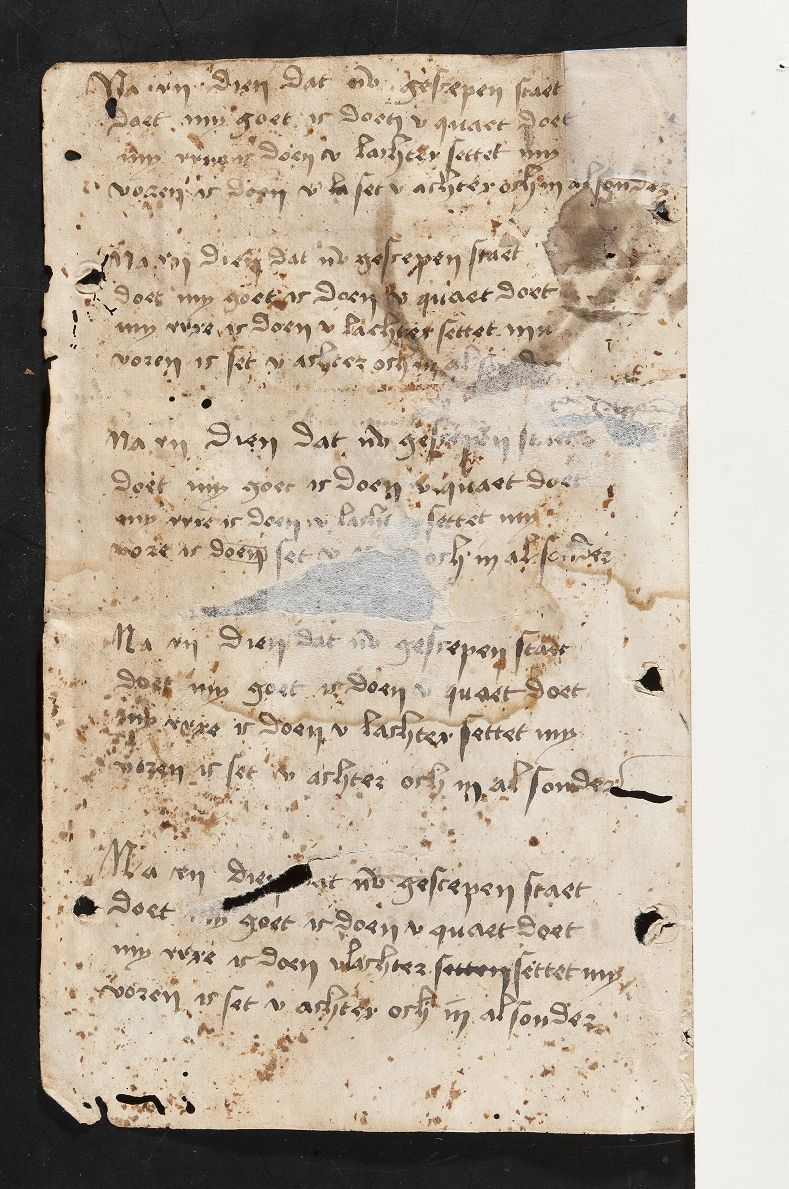 Na rij dien dat nv̄ gescepen staet
doet my goet ic doen v quaet doet
my rrre ic doen v lachter settet my
voren ic doen v la set v achter och in al sonder
Na rij dien dat nv̄ gescepen staet
doet my goet ic doen v quaet doet
my rrre ic doen v lachter settet my
voren ic set v achter och in al
Na rij dien dat nv̄ gescepen staet
doet my goet ic doen v quaet doet
my rrre ic doen v settet my
vore ic doen set v och in al sonder
Na rij dien dat nv̄ gescepen staet
doet my goet ic doen v quaet doet
my rrre ic doen v lachter settet my
voren ic set v achter och in al sonder
Na rij dien dat nv̄ gescepen staet
doet my goet ic doen v quaet doet
my rrre ic doen v lachter setten settet my
voren ic set v achter och in al sonder